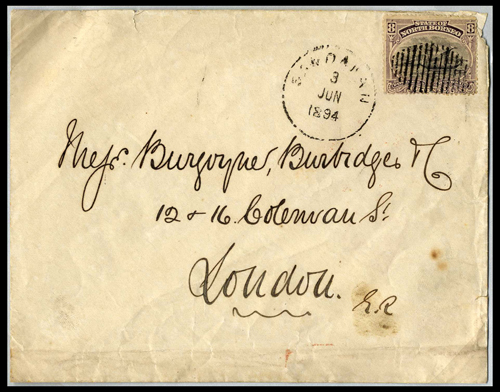 STATE OF
NORTH BORNEO
SANDAKAN
3
JUN
1894
Messrs. Burgoyne, Burbidges &
12 & 16. Coleman St.
London.